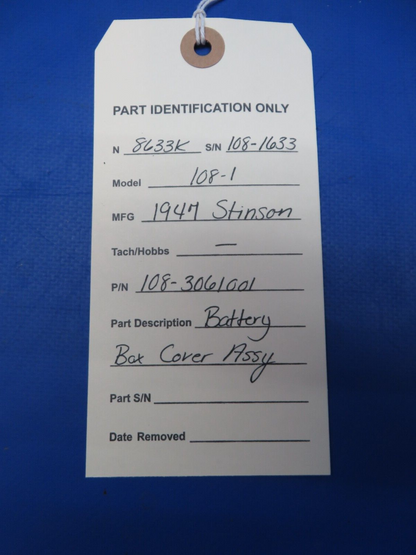 PART IDENTIFICATION ONLY
N 8633K S/N 108-1633
Model 108-1
MFG 1947 Stinson
Tach/Hobbs —
P/N 108-3061001
Part Description Battery
Box Cover Assy
Part S/N
Date Removed